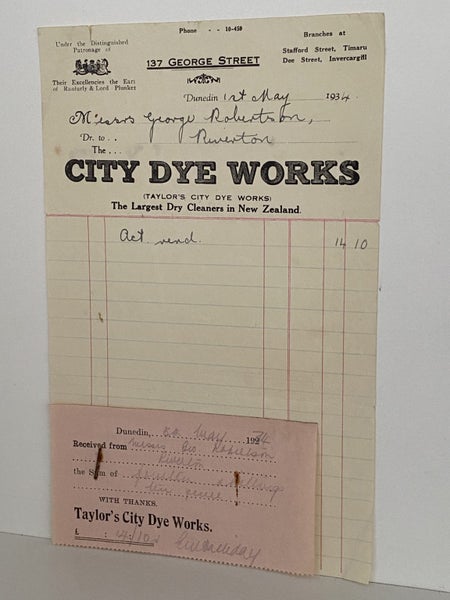 Phone - - 10-450
Under the Distinguished
Patronage of
Their Excellencies the Earl
of Ranfurly & Lord Plunket
137 GEORGE STREET
Branches at
Stafford Street, Timaru
Dee Street, Invercargill
Dunedin 1st May 1934
Messrs George Robertson,
Dr. to . . Riverton
The . . .
CITY DYE WORKS
(TAYLOR'S CITY DYE WORKS)
The Largest Dry Cleaners in New Zealand.
Act. rend. 14 10
Dunedin, May 1934
Received from Messrs Geo Robertson
Riverton
the Sum of shillings
& ten pence
WITH THANKS.
Taylor's City Dye Works.
£ : 14/10